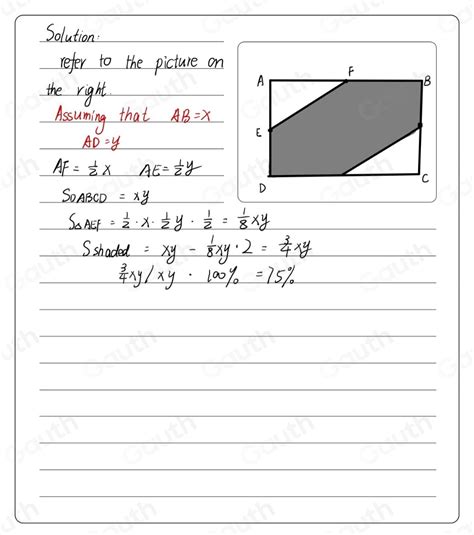 Solution:
refer to the picture on
the right.
Assuming that AB=x
AD=y
AF = 1/2 x AE = 1/2 y
S▱ABCD = xy
S△AEF = 1/2 · x · 1/2 y · 1/2 = 1/8 xy
S shaded = xy - 1/8 xy · 2 = 3/4 xy
3/4 xy / xy · 100% = 75%
A F B
E
D C
Gauth